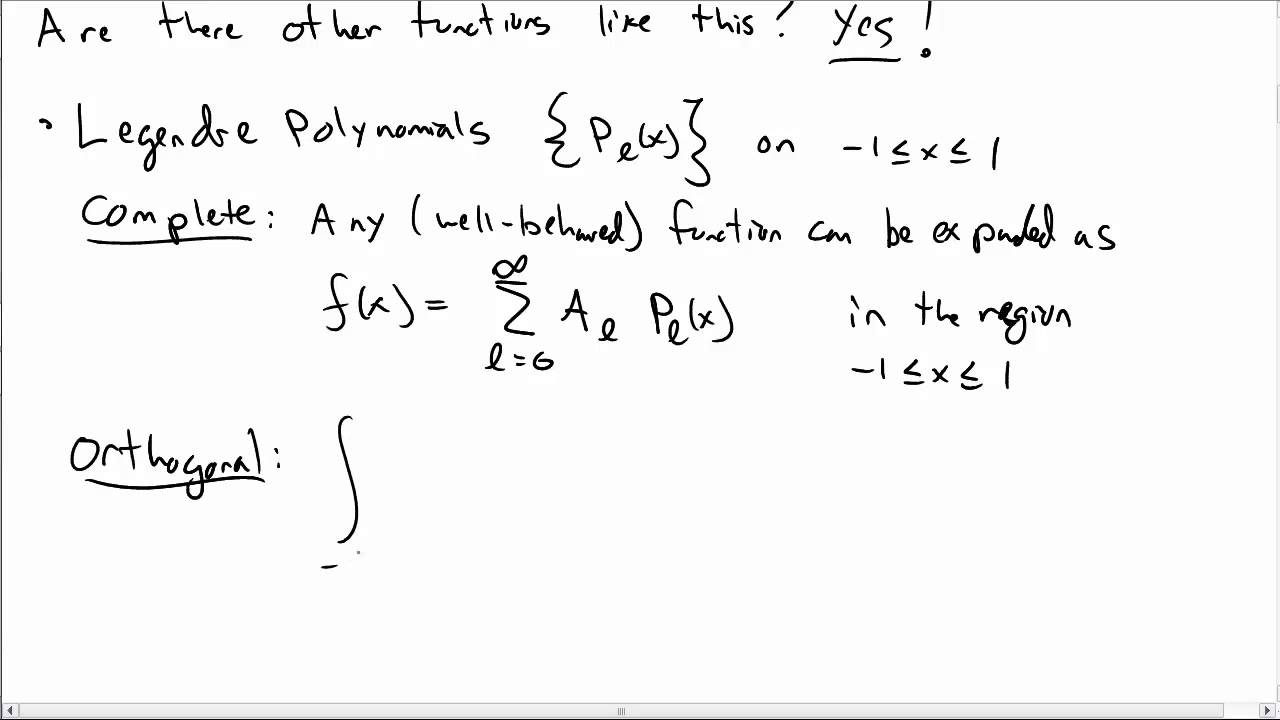 Are there other functions like this? Yes!
• Legendre Polynomials {P_l(x)} on -1 ≤ x ≤ 1
Complete: Any (well-behaved) function can be expanded as
f(x) = ∑_{l=0}^{∞} A_l P_l(x) in the region
-1 ≤ x ≤ 1
Orthogonal: ∫_{-}